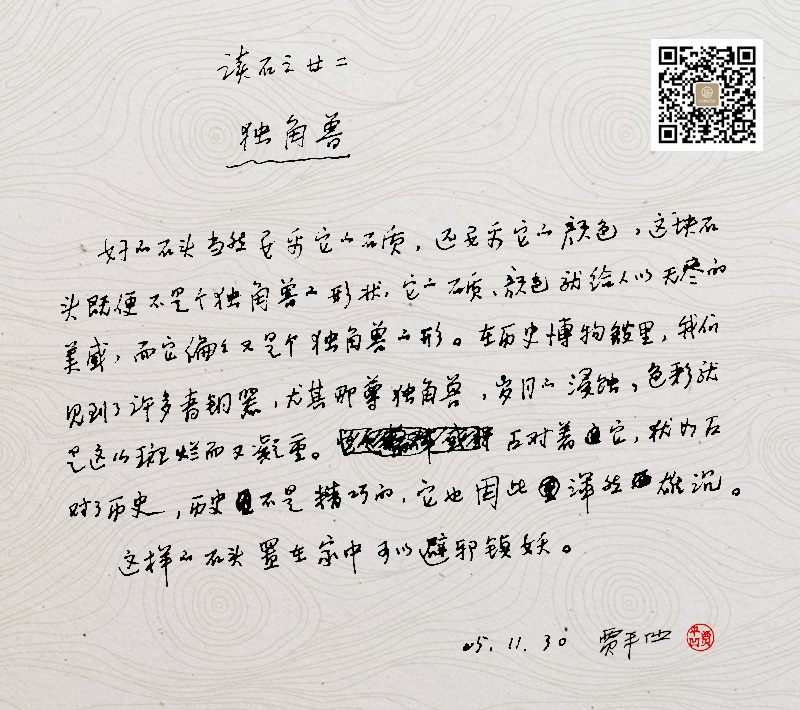 读石之廿二
独角兽
好的石头当然要看它的石质，还要看它的颜色，这块石
头既便不是个独角兽的形状，它的石质、颜色就给人以无尽的
美感，而它偏偏又是个独角兽的形。在历史博物馆里，我们
见到了许多青铜器，尤其那尊独角兽，岁月的浸蚀，色彩就
是这么斑烂而又凝重。面对着它，犹如面
对了历史，历史不是精巧的，它也因此浑然雄沉。
这样的石头置在家中可以避邪镇妖。
05.11.30 贾平凹
贾平凹